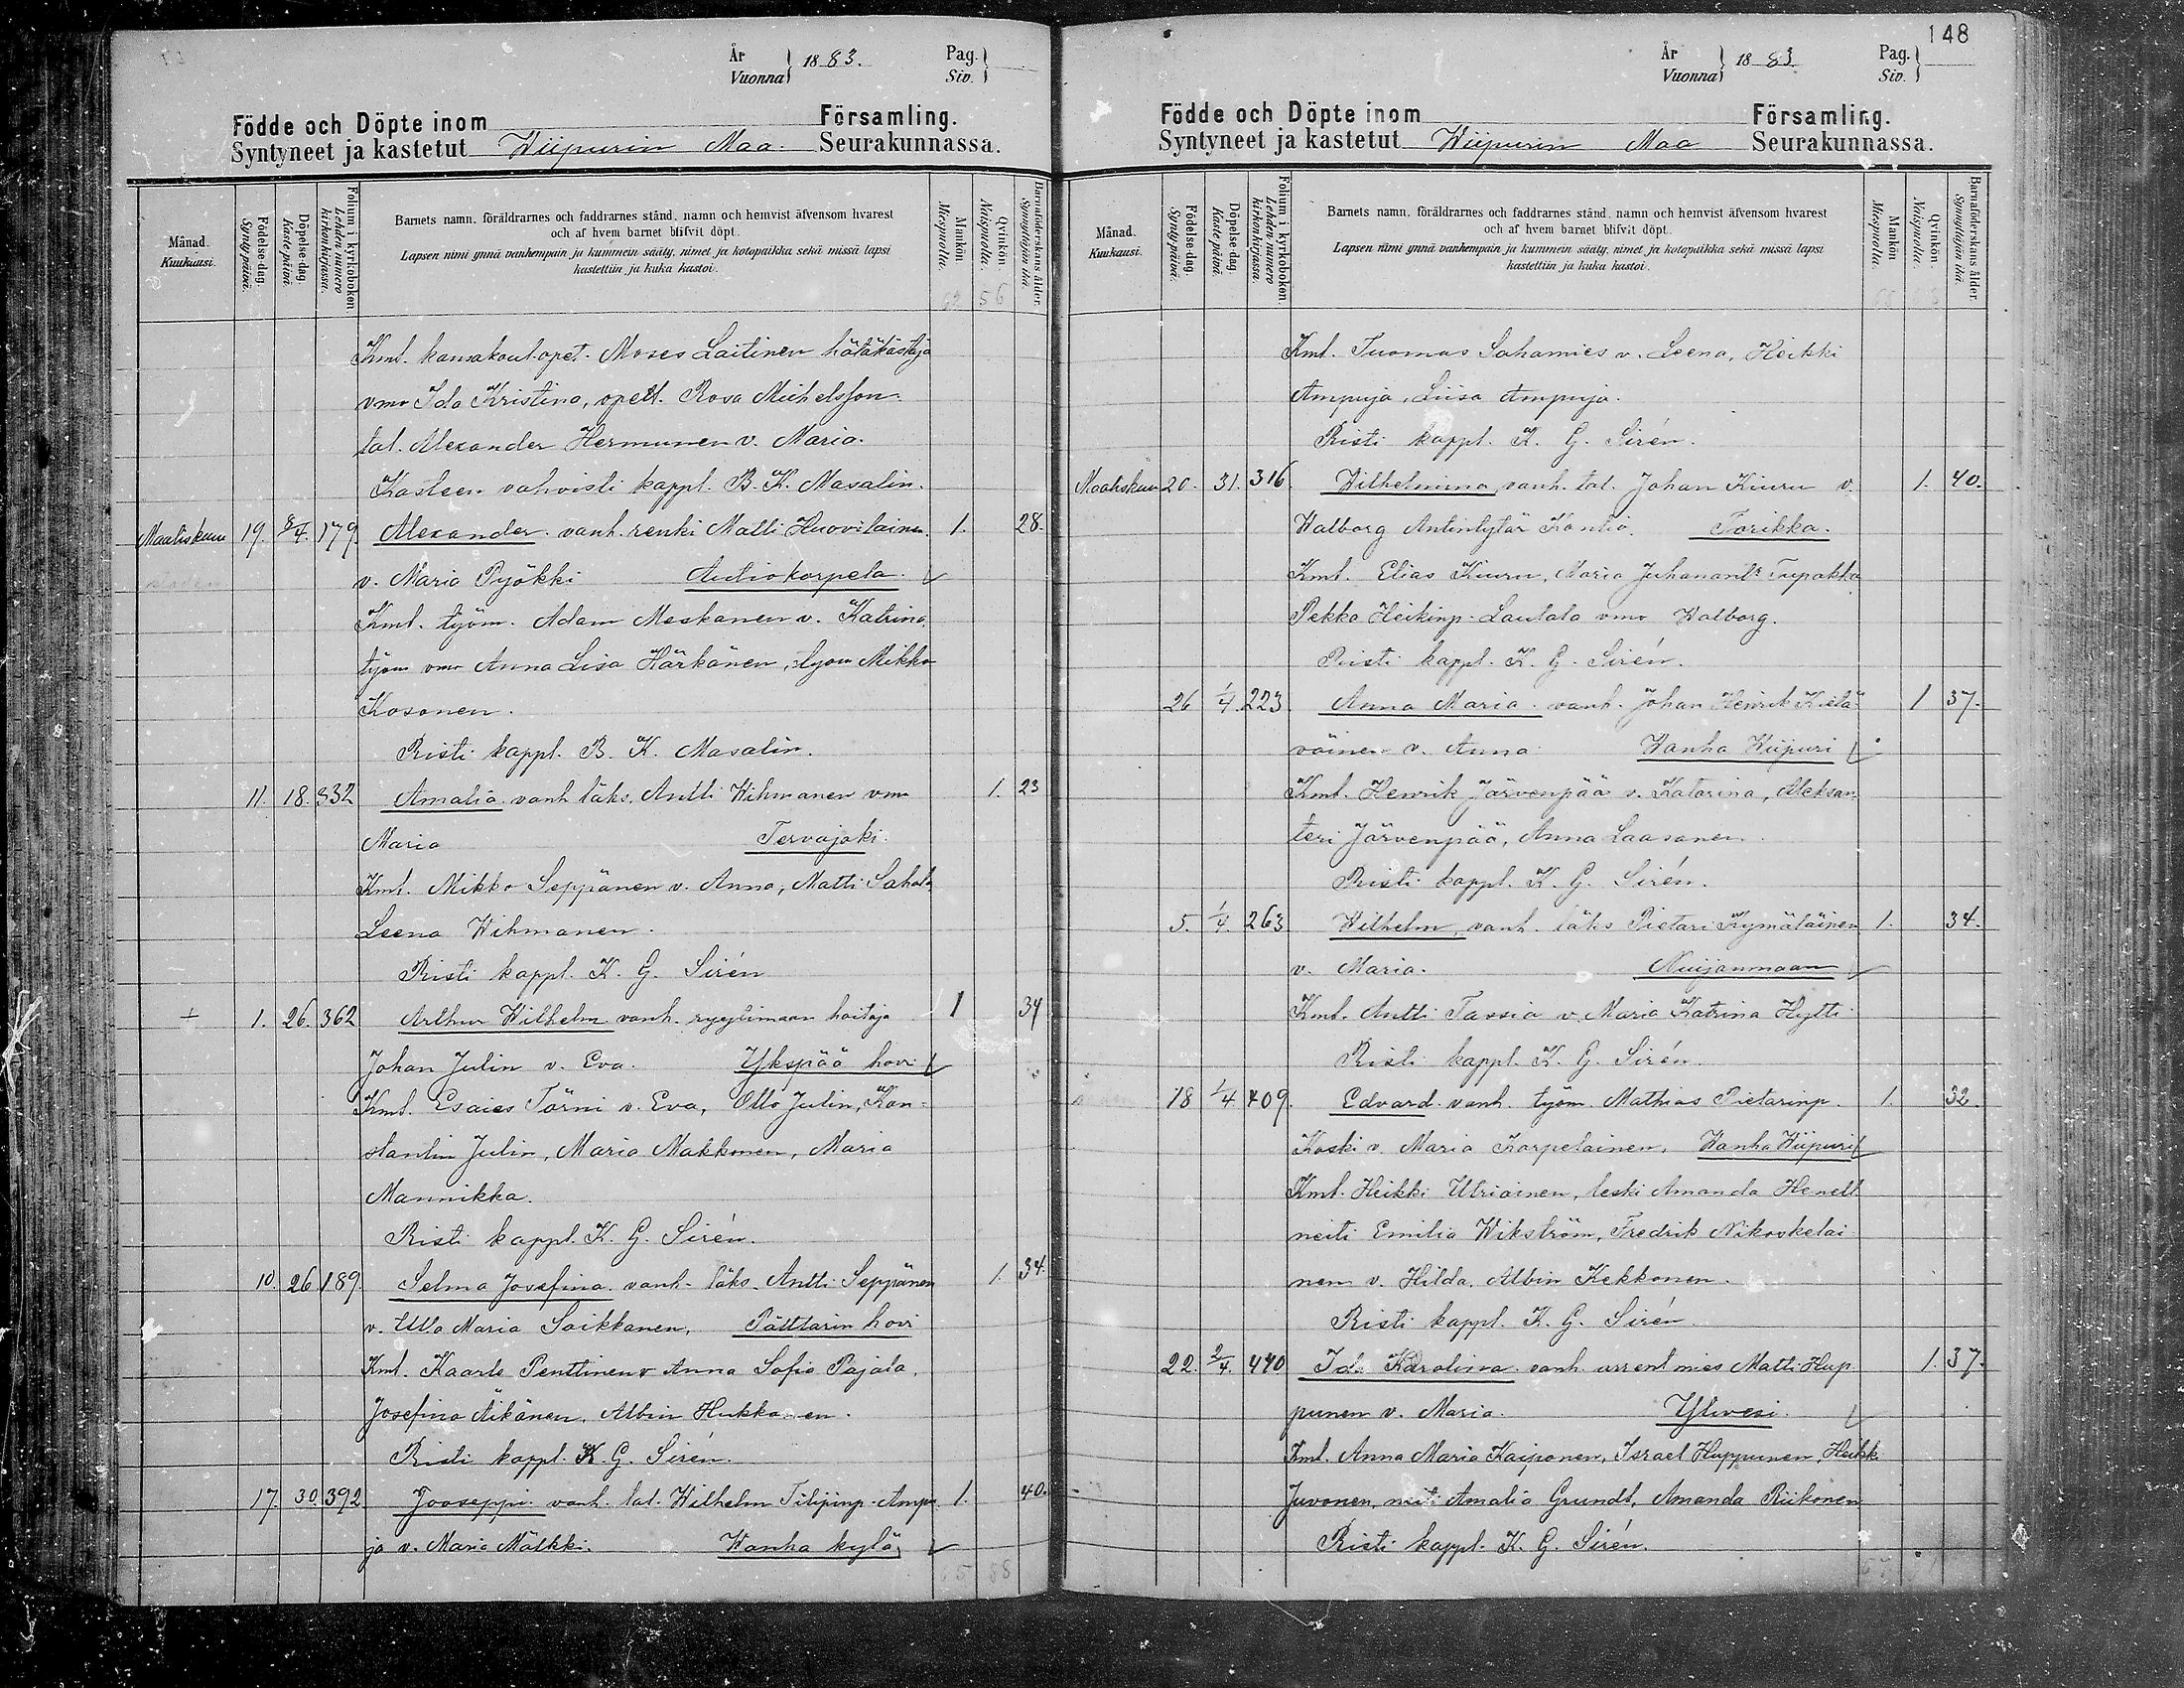 År
Vuonna
1883.
Pag.
Siv.
Födde och Döpte inom Församling.
Syntyneet ja kastetut Wiipurin Maa. Seurakunnassa.
Månad.
Kuukausi.
Födelse-dag.
Syntypäivä.
Döpelse-dag.
Kastepäivä.
Folium i kyrkoboken.
Lehden numero kirkonkirjassa.
Barnets namn, föräldrarnes och faddrarnes stånd, namn och hemvist äfvensom hvarest
och af hvem barnet blifvit döpt.
Lapsen nimi ynnä vanhempain ja kummein sääty, nimet ja kotopaikka sekä missä lapsi
kastettiin ja kuka kastoi.
Mankön.
Miespuolia.
Qvinkön.
Naispuolia.
Barnaföderskans ålder.
Synnyttäjän ikä.
62 56
Kmt. kansakoul.opet. Moses Laitinen hätäkastaja
vmo Ida Kristina, opett. Rosa Michelsson.
tal. Alexander Hermunen v. Maria.
Kasteen vahvisti kappl. B. K. Masalin.
Maaliskuu 19. 8/4. 179. Alexander. vanh. renki Matti Huovilainen. 1. 28.
v. Maria Pyökki Autiokorpela.
Kmt. työm. Adam Meskanen v. Katrina,
työm vmo Anna Lisa Härkönen, työm Mikko
Kosonen.
Risti kappl. B. K. Masalin.
11. 18. 332 Amalia vanh. läks. Antti Wihmanen vmo 1. 23
Maria Tervajoki.
Kmt. Mikko Seppänen v. Anna, Matti Sahala
Leena Wihmanen.
Risti kappl. K. G. Sirén
+ 1. 26. 362 Arthur Wilhelm vanh. ryytimaan hoitaja 1 34
Johan Julin v. Eva. Ykspää hovi
Kmt. Esaias Törni v. Eva, Otto Julin, Kon-
stantin Julin, Maria Makkonen, Maria
Mannikka.
Risti kappl. K. G. Sirén.
10. 26 189 Selma Josefina. vanh. läks. Antti Seppänen 1. 34.
v. Ulla Maria Saikkanen, Pättlärin hovi
Kmt. Kaarle Penttinen v Anna Sofia Pajala,
Josefina Äikänen, Albin Hukkanen.
Risti kappl. K. G. Sirén.
17. 30. 392. Jooseppi vanh. tal. Wilhelm Filipinp. Ampu 1. 40.
ja v. Maria Mälkki. Wanha kylä
65 58
148
År
Vuonna
1883.
Pag.
Siv.
Födde och Döpte inom Församling.
Syntyneet ja kastetut Wiipurin Maa Seurakunnassa.
Månad.
Kuukausi.
Födelse-dag.
Syntypäivä.
Döpelse-dag.
Kastepäivä.
Folium i kyrkoboken.
Lehden numero kirkonkirjassa.
Barnets namn, föräldrarnes och faddrarnes stånd, namn och hemvist äfvensom hvarest
och af hvem barnet blifvit döpt.
Lapsen nimi ynnä vanhempain ja kummein sääty, nimet ja kotopaikka sekä missä lapsi
kastettiin ja kuka kastoi.
Mankön
Miespuolia.
Qvinkön.
Naispuolia.
Barnaföderskans ålder.
Synnyttäjän ikä.
Kmt. Tuomas Sahamies v. Leena, Heikki
Ampuja, Liisa Ampuja.
Risti kappl. K. G. Sirén.
Maaliskuu 20. 31. 316. Wilhelmina, vanh. tal. Johan Kiuru v. 1. 40.
Walborg Antintytär Kontio. Torikka.
Kmt. Elias Kiuru, Maria Juhanant:r Tupakka
Pekka Heikinp. Lautala vmo Walborg.
Risti kappl. K. G. Sirén.
26 1/4. 223 Anna Maria. vanh. Johan Henrik Kielä- 1 37.
väinen v. Anna Wanha Wiipuri
Kmt. Henrik Järvenpää v. Katarina, Aleksan-
teri Järvenpää, Anna Laasanen.
Risti kappl. K. G. Sirén.
5. 1/4. 263 Wilhelm, vanh. läks Pietari Kymäläinen 1. 34.
v. Maria. Nuijanmaan
Kmt. Antti Tassia v. Maria Katrina Hytti
Risti kappl. K. G. Sirén.
18 1/4 409. Edvard. vanh. työm. Mathias Pietarinp. 1. 32
Koski v. Maria Karpelainen, Wanha Wiipuri
Kmt. Heikki Ulriainen, leski Amanda Henell
neiti Emilia Wikström, Fredrik Nikoskelai-
nen v. Hilda, Albin Kekkonen.
Risti kappl. K. G. Sirén
22. 2/4. 440 Ida Karolina. vanh. arrent mies Matti Hup- 1. 37.
punen v. Maria. Ylivesi.
Kmt. Anna Maria Kaiponen, Israel Huppunen, Heikki
Juvonen, neiti Amalia Grundt, Amanda Riikonen
Risti kappl. K. G. Sirén.
67